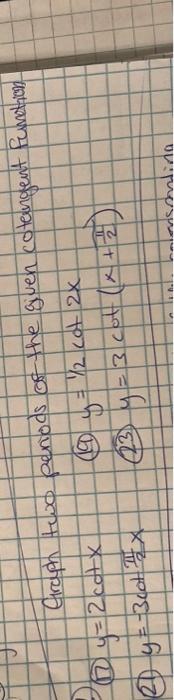 Graph two periods of the given cotangent function
⑰ y = 2 cot x ⑲ y = 1/2 cot 2x
㉑ y = -3 cot π/2 x ㉓ y = 3 cot (x + π/2)